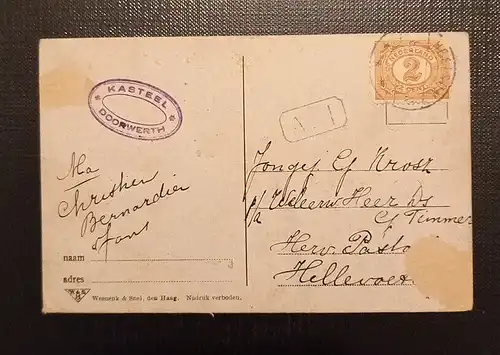 KASTEEL
DOORWERTH
Ma
Christien
Bernardien
naam
adres
Weenenk & Snel, den Haag. Nadruk verboden.
NEDERLAND
2
CENT
A 1
Jongej G
p/a WelEerw Heer Ds
G Timmer
Herv. Pasto
Hellevoet